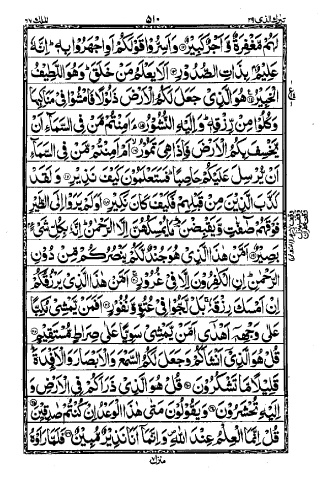 تبٰرك الذی ٢٩ ٥١٠ الملك ٦٧
لَهُمْ مَّغْفِرَةٌ وَّاَجْرٌ كَبِيْرٌ ۝ وَاَسِرُّوْا قَوْلَكُمْ اَوِ اجْهَرُوْا بِهٖ ؕ اِنَّهٗ
عَلِيْمٌۢ بِذَاتِ الصُّدُوْرِ ۝ اَلَا يَعْلَمُ مَنْ خَلَقَ ؕ وَهُوَ اللَّطِيْفُ
الْخَبِيْرُ ۝ هُوَ الَّذِيْ جَعَلَ لَكُمُ الْاَرْضَ ذَلُوْلًا فَامْشُوْا فِيْ مَنَاكِبِهَا
وَكُلُوْا مِنْ رِّزْقِهٖ ؕ وَاِلَيْهِ النُّشُوْرُ ۝ ءَاَمِنْتُمْ مَّنْ فِي السَّمَآءِ اَنْ
يَّخْسِفَ بِكُمُ الْاَرْضَ فَاِذَا هِيَ تَمُوْرُ ۝ اَمْ اَمِنْتُمْ مَّنْ فِي السَّمَآءِ
اَنْ يُّرْسِلَ عَلَيْكُمْ حَاصِبًا ؕ فَسَتَعْلَمُوْنَ كَيْفَ نَذِيْرِ ۝ وَلَقَدْ
كَذَّبَ الَّذِيْنَ مِنْ قَبْلِهِمْ فَكَيْفَ كَانَ نَكِيْرِ ۝ اَوَلَمْ يَرَوْا اِلَى الطَّيْرِ
فَوْقَهُمْ صٰٓفّٰتٍ وَّيَقْبِضْنَ ؔ مَا يُمْسِكُهُنَّ اِلَّا الرَّحْمٰنُ ؕ اِنَّهٗ بِكُلِّ شَيْءٍۭ
بَصِيْرٌ ۝ اَمَّنْ هٰذَا الَّذِيْ هُوَ جُنْدٌ لَّكُمْ يَنْصُرُكُمْ مِّنْ دُوْنِ
الرَّحْمٰنِ ؕ اِنِ الْكٰفِرُوْنَ اِلَّا فِيْ غُرُوْرٍ ۝ اَمَّنْ هٰذَا الَّذِيْ يَرْزُقُكُمْ
اِنْ اَمْسَكَ رِزْقَهٗ ۚ بَلْ لَّجُّوْا فِيْ عُتُوٍّ وَّنُفُوْرٍ ۝ اَفَمَنْ يَّمْشِيْ مُكِبًّا
عَلٰى وَجْهِهٖٓ اَهْدٰٓى اَمَّنْ يَّمْشِيْ سَوِيًّا عَلٰى صِرَاطٍ مُّسْتَقِيْمٍ ۝
قُلْ هُوَ الَّذِيْٓ اَنْشَاَكُمْ وَجَعَلَ لَكُمُ السَّمْعَ وَالْاَبْصَارَ وَالْاَفْـِٕدَةَ ؕ
قَلِيْلًا مَّا تَشْكُرُوْنَ ۝ قُلْ هُوَ الَّذِيْ ذَرَاَكُمْ فِي الْاَرْضِ وَ
اِلَيْهِ تُحْشَرُوْنَ ۝ وَيَقُوْلُوْنَ مَتٰى هٰذَا الْوَعْدُ اِنْ كُنْتُمْ صٰدِقِيْنَ ۝
قُلْ اِنَّمَا الْعِلْمُ عِنْدَ اللّٰهِ ۪ وَاِنَّمَآ اَنَا نَذِيْرٌ مُّبِيْنٌ ۝ فَلَمَّا رَاَوْهُ
منزل ٧